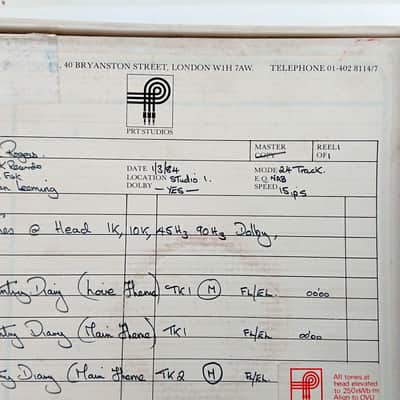 , 40 BRYANSTON STREET, LONDON W1H 7AW. TELEPHONE 01-402 8114/7
PRT STUDIOS
MASTER REEL 1
COPY OF 1
Rogers.
DATE 1/3/84 MODE 24 Track.
LOCATION Studio 1. E.Q. NAB
DOLBY — YES — SPEED 15 ips
Leeming
@ Head 1K, 10K, 45Hz 90Hz Dolby,
Diary (Love Theme) TK1 M FL/EL. 00'00
Diary (Main Theme) TK1 FL/EL 00'00
Diary (Main Theme TK2 M FL/EL.
All tones at
head elevated
to 250nWb/m
Align to OVU